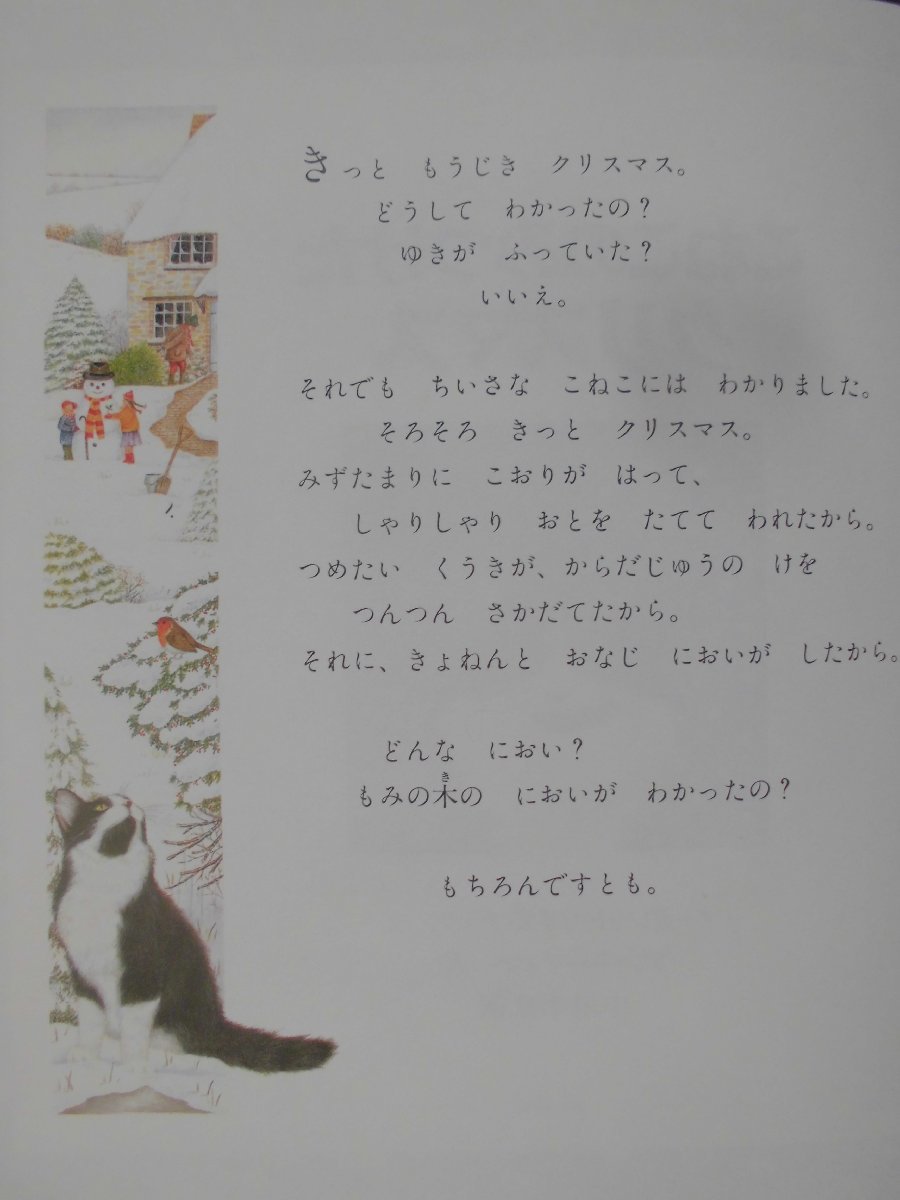 きっと　もうじき　クリスマス。
どうして　わかったの？
ゆきが　ふっていた？
いいえ。
それでも　ちいさな　こねこには　わかりました。
そろそろ　きっと　クリスマス。
みずたまりに　こおりが　はって、
しゃりしゃり　おとを　たてて　われたから。
つめたい　くうきが、からだじゅうの　けを
つんつん　さかだてたから。
それに、きょねんと　おなじ　においが　したから。
どんな　におい？
もみの木の　においが　わかったの？
もちろんですとも。